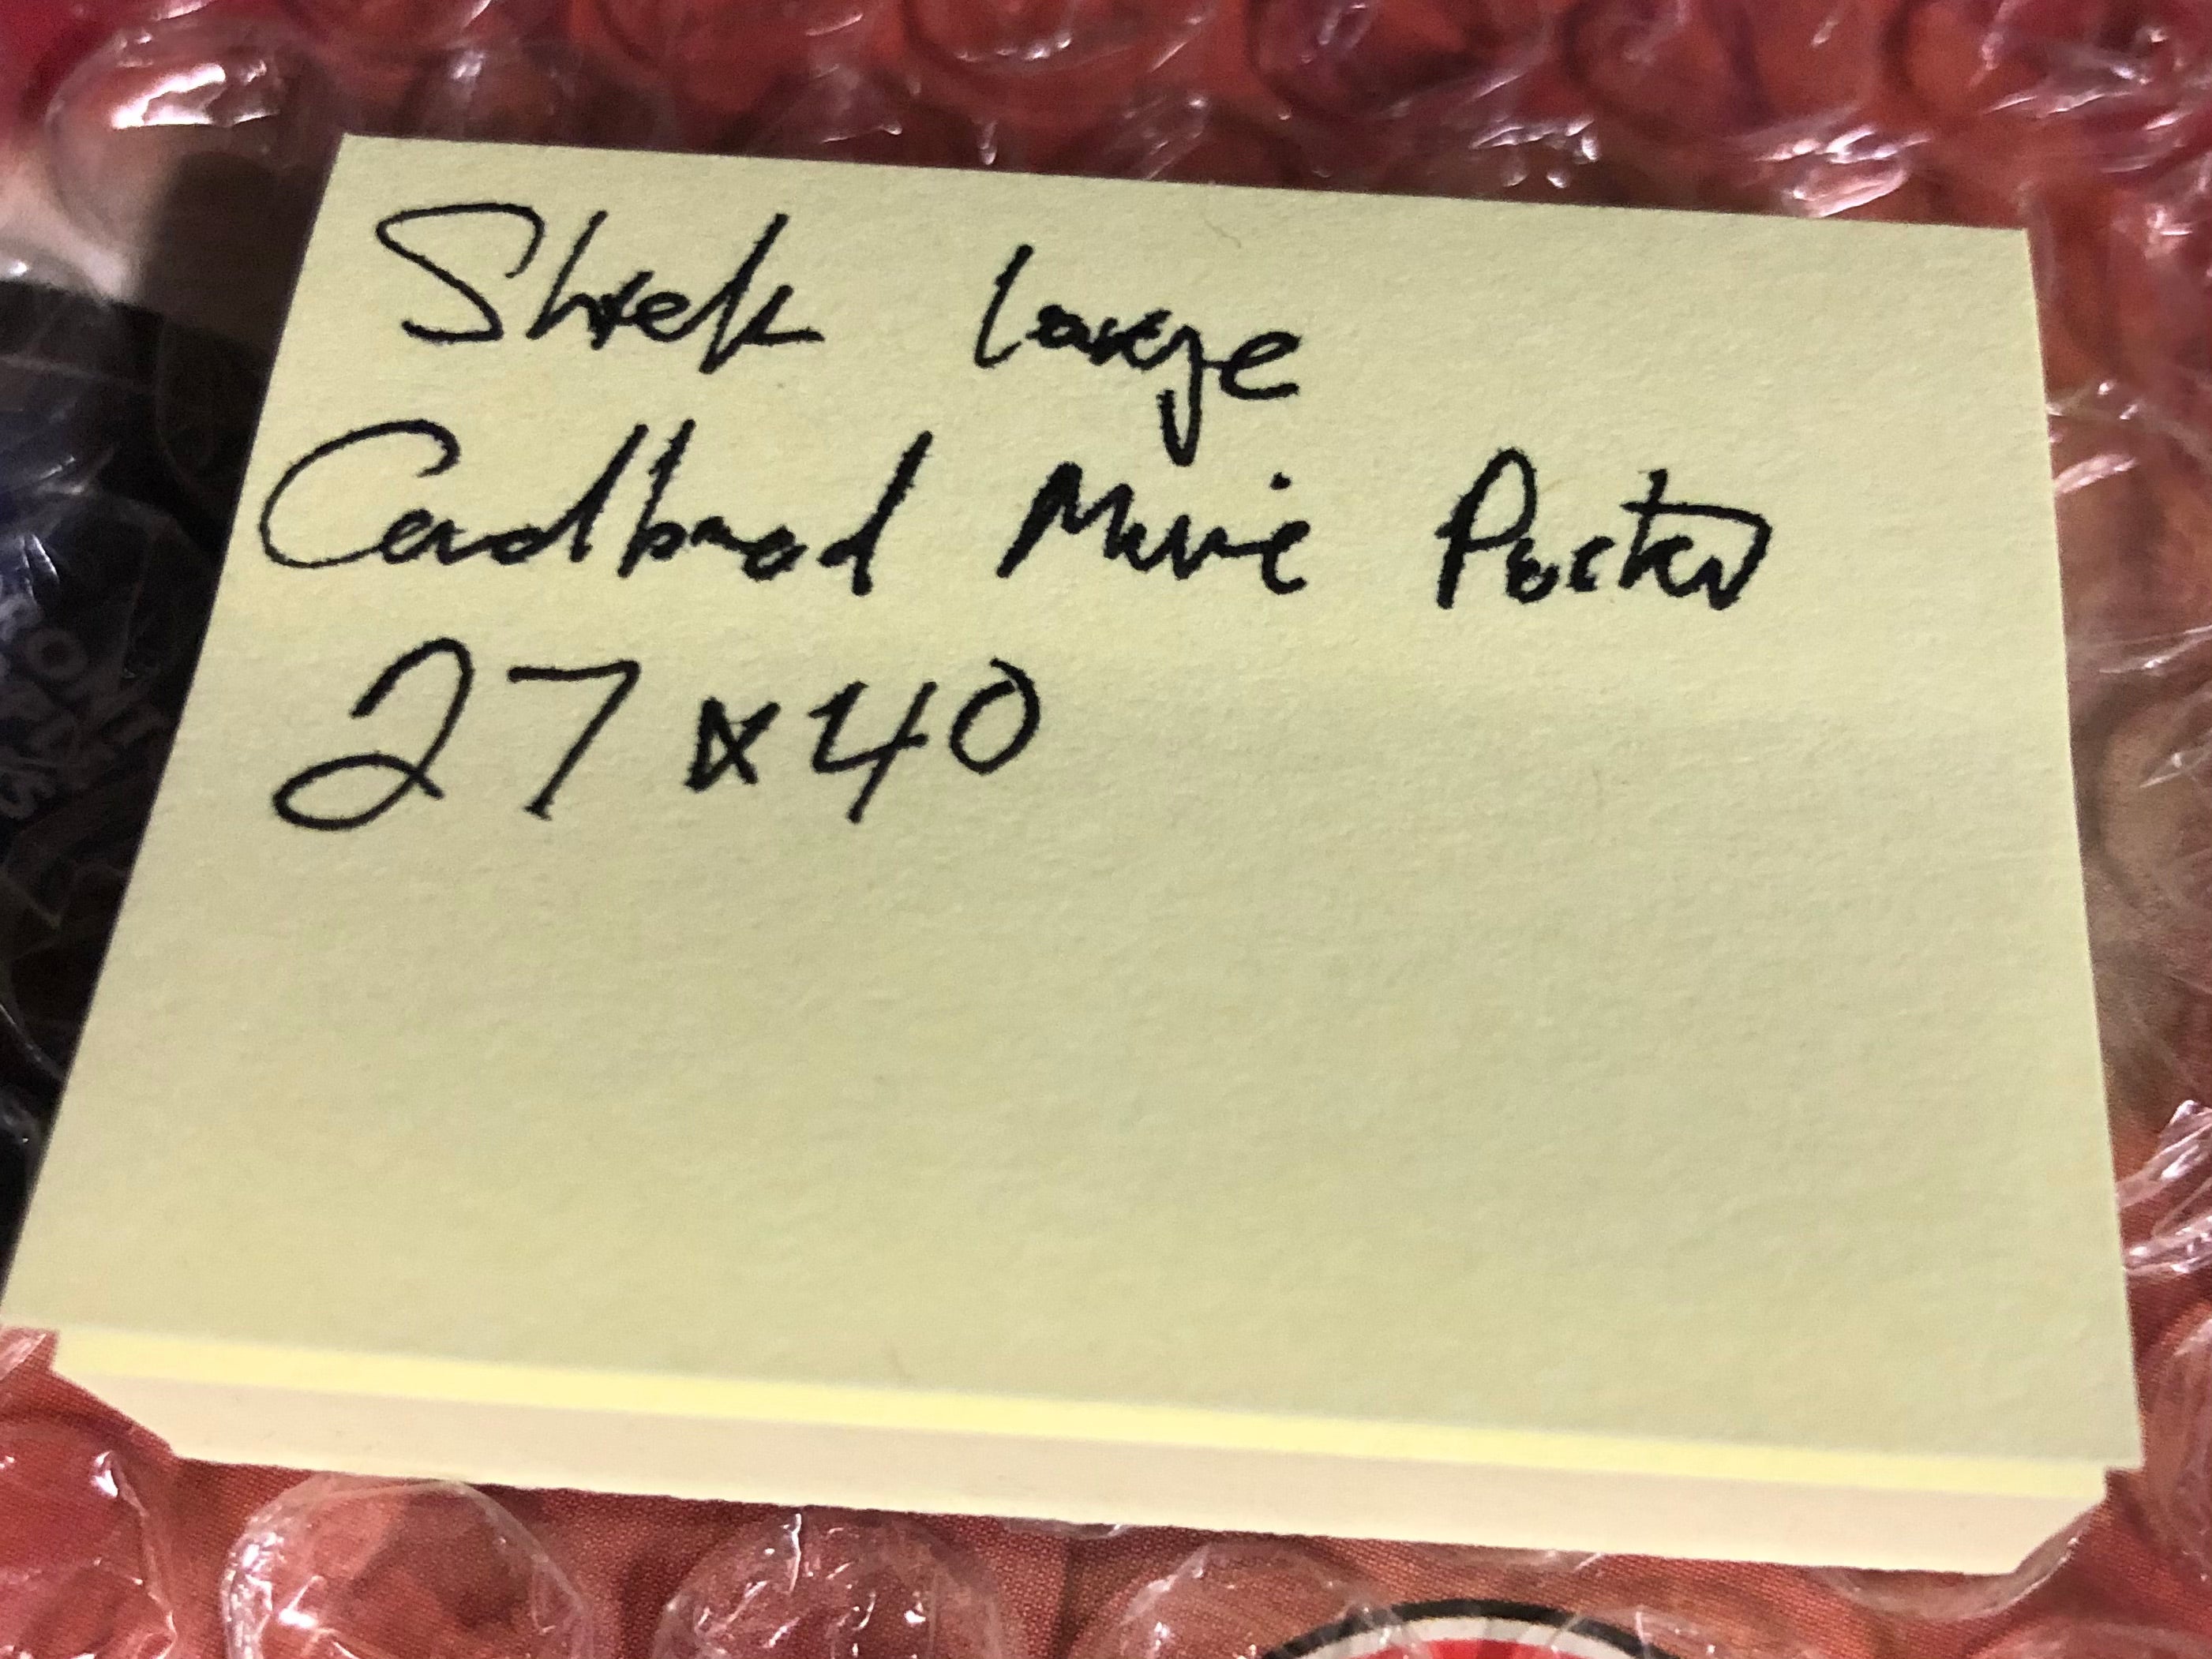 Shrek Large
Cardboard Movie Poster
27x40